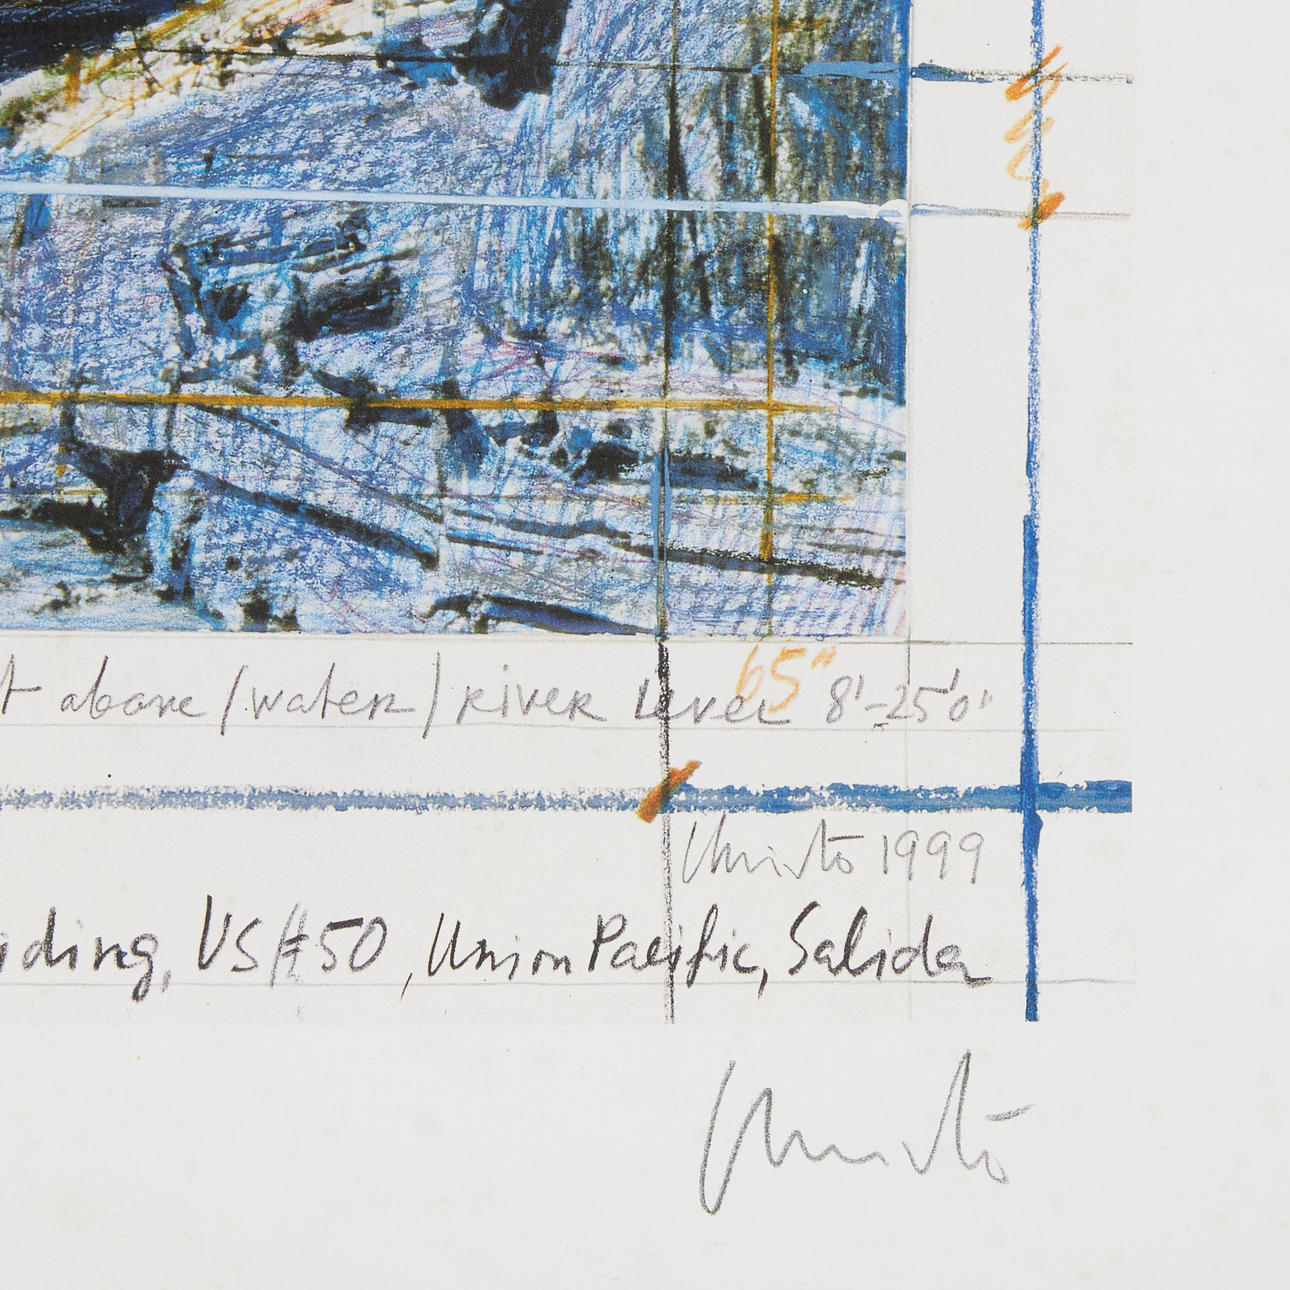 t above / (water) / river level 8'-25'0"
65"
Christo 1999
iding, US#50, Union Pacific, Salida
Christo